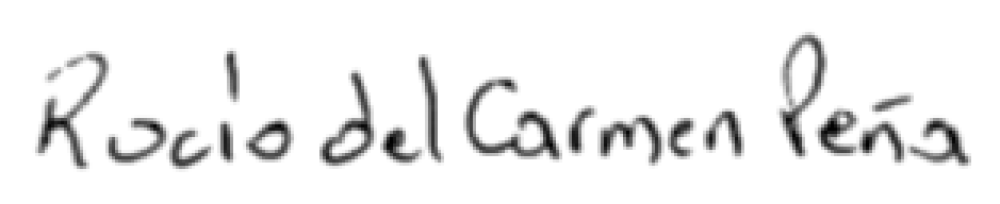 Rocío del Carmen Peña